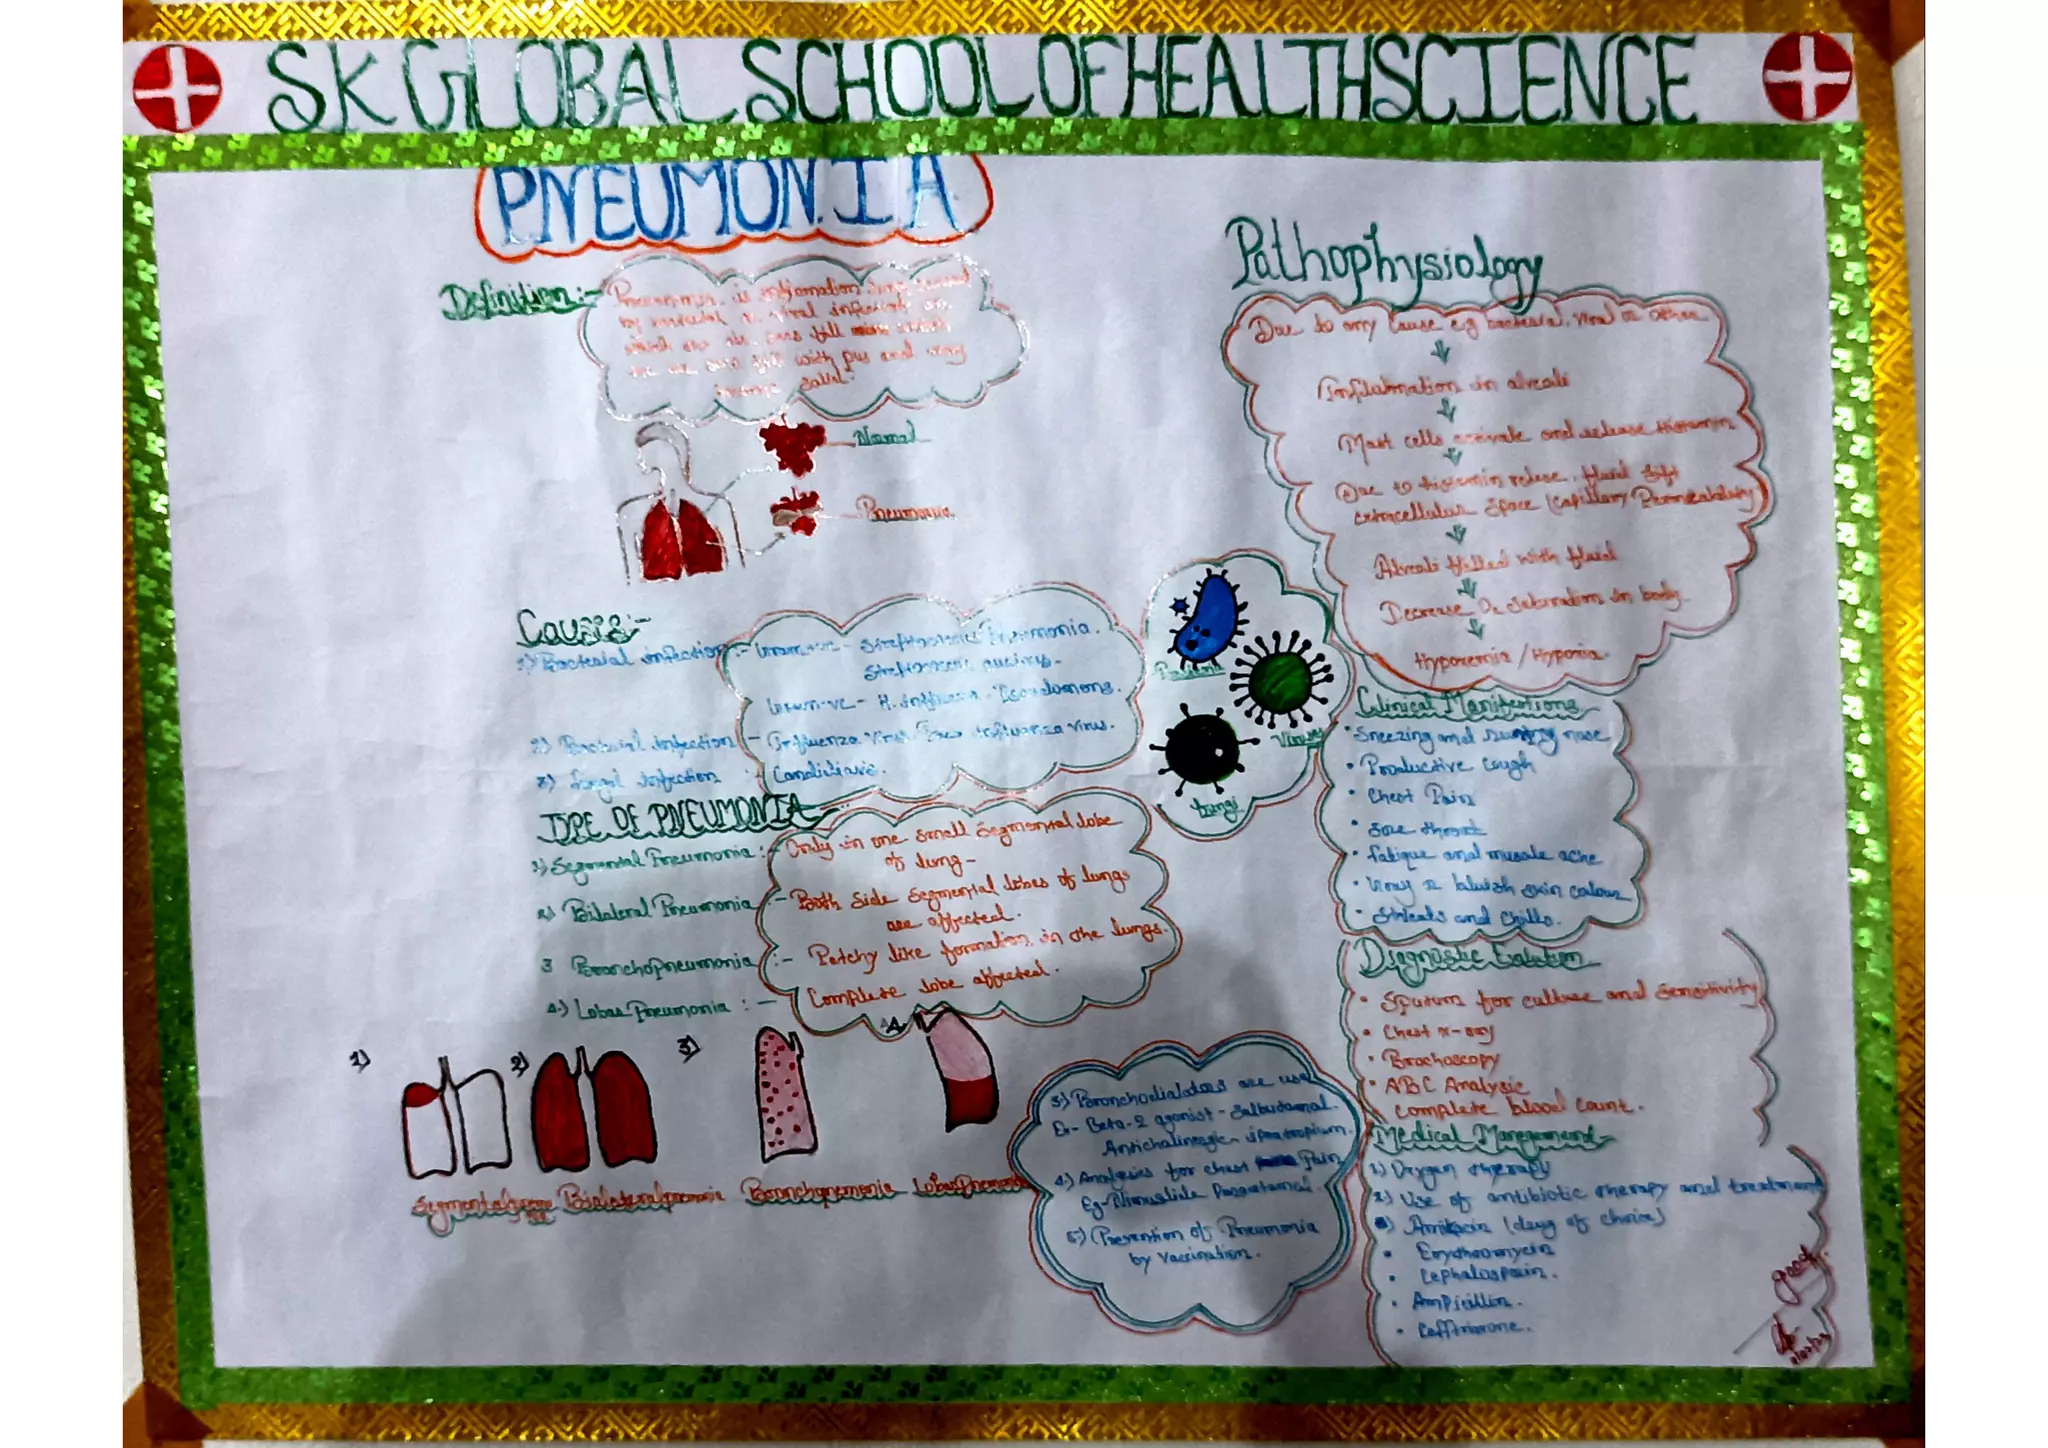 SK GLOBAL SCHOOL OF HEALTH SCIENCE
PNEUMONIA
Definition:-
Pneumonia is inflamation lung caused
by bacterial or viral infection in
which air sacs fill
with pus and may
Normal
Pneumonia
Causes:-
1) Bacterial infection:- Gram+ve - Streptococus Pneumonia.
Gram-ve - H. influenza.
2) infection - Influenza virus, influenza virus.
3) infection :- Candidiasis.
Bacteria
Viruses
fungi
TYPE OF PNEUMONIA:-
1) Segmental Pneumonia:- Only in one small Segmental lobe
of lung-
2) Bilateral Pneumonia:- Both Side Segmental lobes of lungs
are affected.
3 Bronchopneumonia :- Patchy like formation in the lungs.
4.) Lobar Pneumonia: - Complete lobe affected.
1)
2)
3)
Bronchpnemonia
Pathophysiology
Due to any Cause eg bacterial, viral or other
Inflamation in alveoli
Mast cells activate and release Histamin
Due to histemin relese, fluid
extracellular Space (capillary Permeability)
Alveoli filled with fluid
Decrease O2 Saturation in body.
Hypoxemia / Hypoxia.
Clinical Manifestions
• Sneezing and runny nose
• Productive Cough
• Chest Pain
• Sore throat
• fatique and muscle ache
• Gray or bluish skin colour
• Sweats and chills.
Diagnostic Evalution
• Sputum for culture and sensitivity
• Chest x-ray
• Brochoscopy
• ABC Analysic
Complete blood Count.
Medical Management-
1) Oxygen therapy
2) Use of antibiotic therapy and treatment
Amikacin (drug of choice)
• Erythromycin
• Cephalosporin.
• Ampicillin.
• Cefftrixone.
3) Bronchodialators are use
Ex- Beta-2 agonist - Salbutamal.
Antichalinergic - ipratropium.
4.) Analgesics for chest Pain
Eg- Nimuslide Paracetamal.
5.) Prevention of Pneumonia
by Vaccination.
good